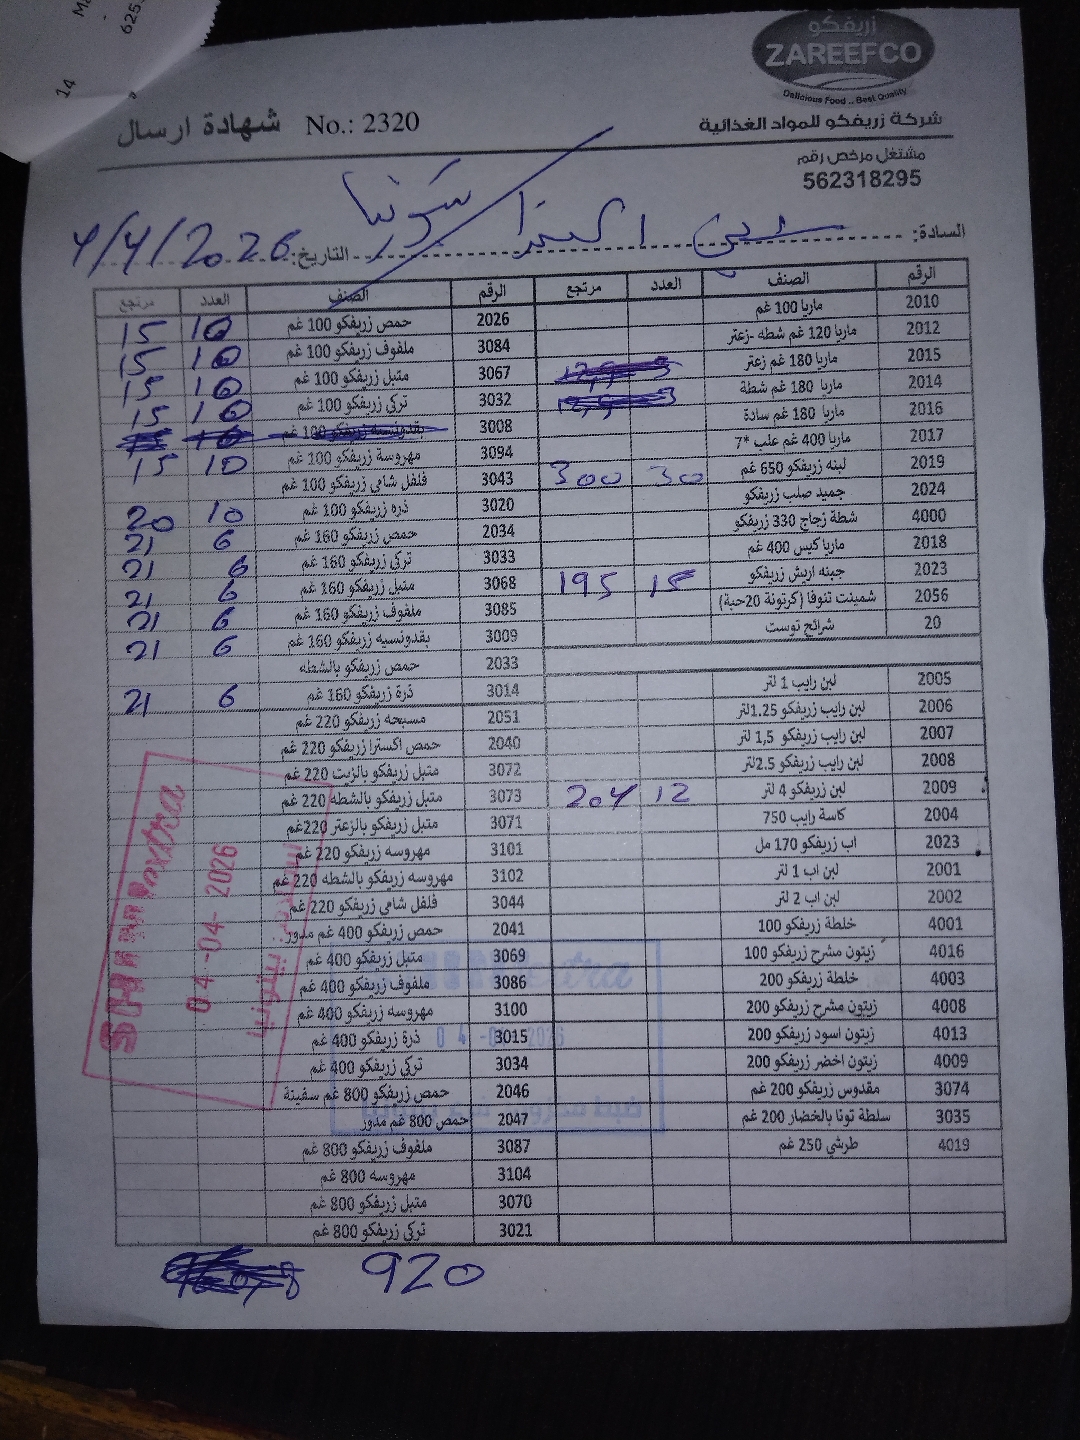 زريفكو
ZAREEFCO
Delicious Food .. Best Quality
شركة زريفكو للمواد الغذائية
شهادة ارسال No.: 2320
مشتغل مرخص رقم
562318295
السادة: اكسترا
التاريخ: 4/4/2026
الرقم الصنف العدد مرتجع الرقم الصنف العدد مرتجع
2010 ماريا 100 غم
2012 ماريا 120 غم شطه -زعتر
2015 ماريا 180 غم زعتر
2014 ماريا 180 غم شطة
2016 ماريا 180 غم سادة
2017 ماريا 400 غم علب *7
2019 لبنه زريفكو 650 غم 30 300
2024 جميد صلب زريفكو
4000 شطة زجاج 330 زريفكو
2018 ماريا كيس 400 غم
2023 جبنه اريش زريفكو 15 195
2056 شمينت تنوفا (كرتونة 20حبة)
20 شرائح توست
2005 لبن رايب 1 لتر
2006 لبن رايب زريفكو 1.25لتر
2007 لبن رايب زريفكو 1,5 لتر
2008 لبن رايب زريفكو 2.5لتر
2009 لبن زريفكو 4 لتر 12 204
2004 كاسة رايب 750
2023 اب زريفكو 170 مل
2001 لبن اب 1 لتر
2002 لبن اب 2 لتر
4001 خلطة زريفكو 100
4016 زيتون مشرح زريفكو 100
4003 خلطة زريفكو 200
4008 زيتون مشرح زريفكو 200
4013 زيتون اسود زريفكو 200
4009 زيتون اخضر زريفكو 200
3074 مقدوس زريفكو 200 غم
3035 سلطة تونا بالخضار 200 غم
4019 طرشي 250 غم
2026 حمص زريفكو 100 غم 10 15
3084 ملفوف زريفكو 100 غم 10 15
3067 متبل زريفكو 100 غم 10 15
3032 تركي زريفكو 100 غم 10 15
3008 بقدونسيه زريفكو 100 غم
3094 مهروسة زريفكو 100 غم 10 15
3043 فلفل شامي زريفكو 100 غم
3020 ذره زريفكو 100 غم 10 20
2034 حمص زريفكو 160 غم 6 21
3033 تركي زريفكو 160 غم 6 21
3068 متبل زريفكو 160 غم 6 21
3085 ملفوف زريفكو 160 غم 6 21
3009 بقدونسيه زريفكو 160 غم 6 21
2033 حمص زريفكو بالشطه
3014 ذرة زريفكو 160 غم 6 21
2051 مسبحه زريفكو 220 غم
2040 حمص اكسترا زريفكو 220 غم
3072 متبل زريفكو بالزيت 220 غم
3073 متبل زريفكو بالشطه 220 غم
3071 متبل زريفكو بالزعتر 220غم
3101 مهروسه زريفكو 220 غم
3102 مهروسه زريفكو بالشطه 220 غم
3044 فلفل شامي زريفكو 220 غم
2041 حمص زريفكو 400 غم مدور
3069 متبل زريفكو 400 غم
3086 ملفوف زريفكو 400 غم
3100 مهروسه زريفكو 400 غم
3015 ذرة زريفكو 400 غم
3034 تركي زريفكو 400 غم
2046 حمص زريفكو 800 غم سفينة
2047 حمص 800 غم مدور
3087 ملفوف زريفكو 800 غم
3104 مهروسه 800 غم
3070 متبل زريفكو 800 غم
3021 تركي زريفكو 800 غم
extra
04-04-2026
extra
920
14